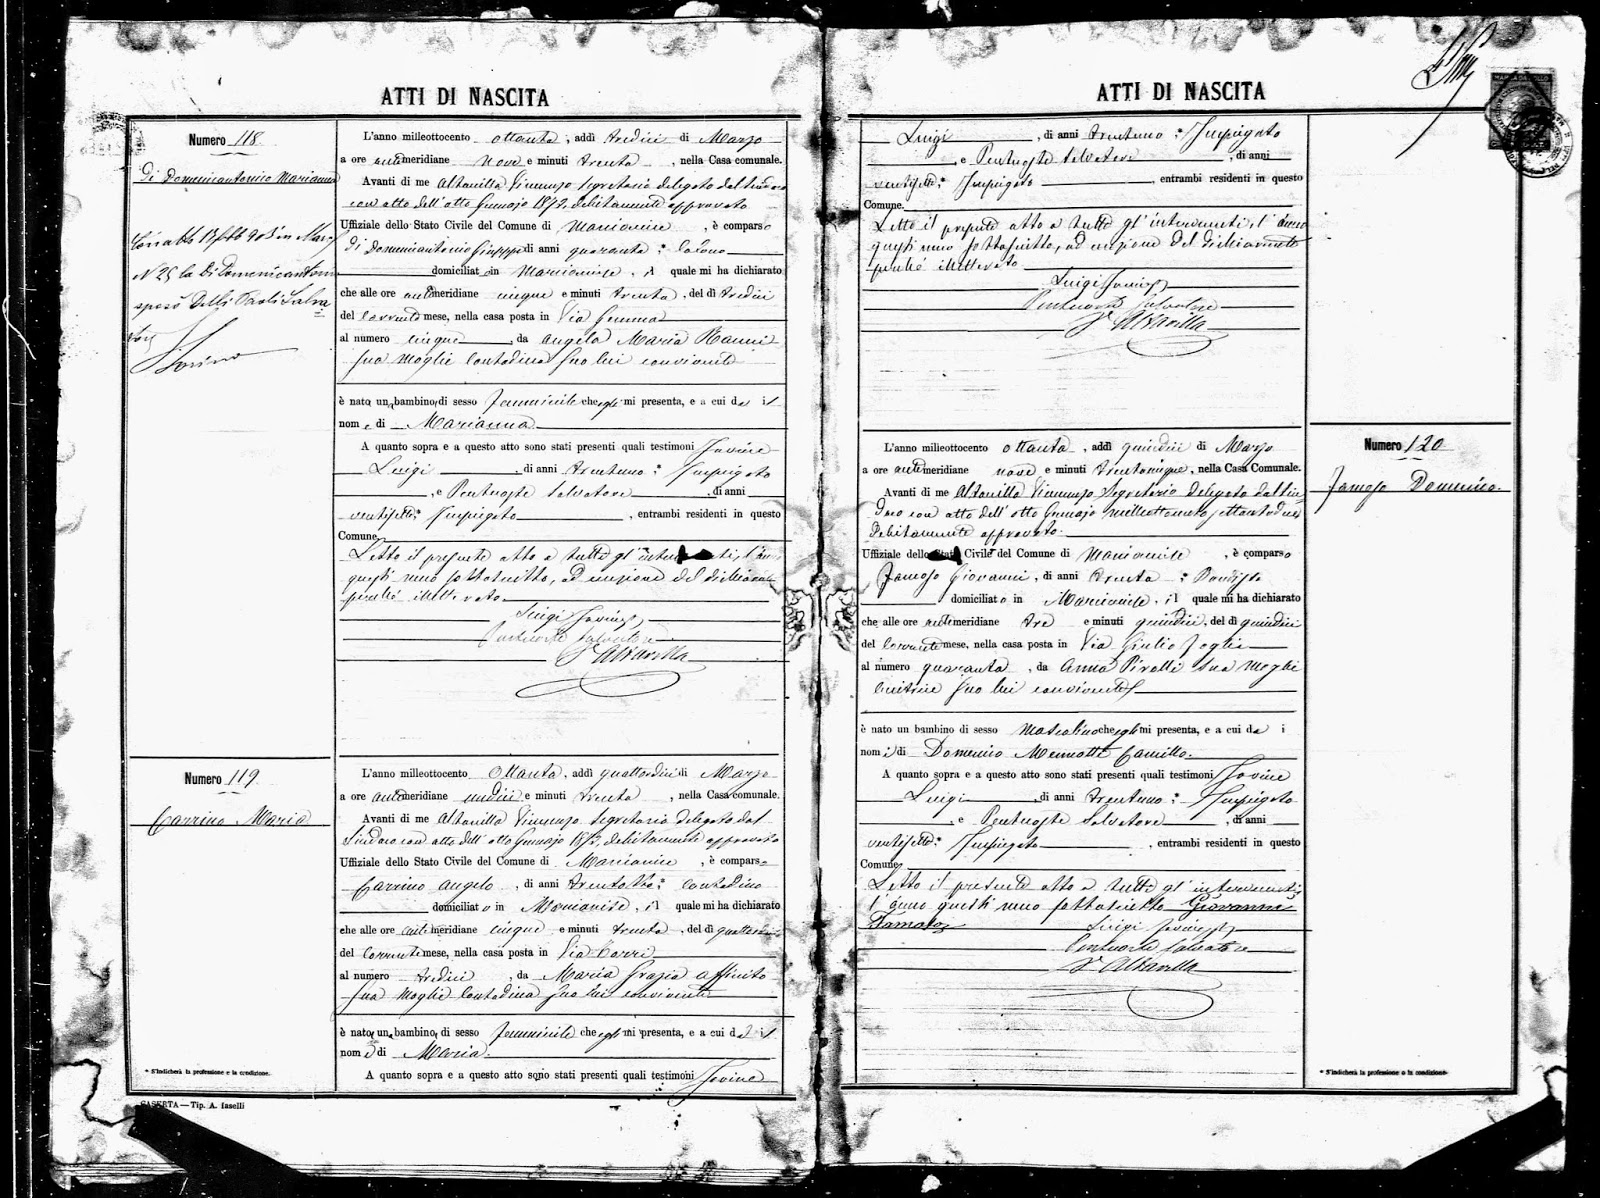 ATTI DI NASCITA
Numero 118
Di Domenicantonio Marianna
N. 25 la Di Domenicantonio
sposò Delli Paoli Salva
tore
Iorino
L'anno milleottocento ottanta, addì tredici di Marzo
a ore antimeridiane nove e minuti trenta, nella Casa comunale.
Avanti di me Altavilla Vincenzo Segretario delegato dal Sindaco
con atto dell'otto Gennajo 1872, debitamente approvato
Uffiziale dello Stato Civile del Comune di Marcianise, è comparso
Di Domenicantonio Giuseppe di anni quaranta * Colono
domiciliato in Marcianise, il quale mi ha dichiarato
che alle ore antimeridiane cinque e minuti trenta, del dì tredici
del corrente mese, nella casa posta in Via Gemma
al numero cinque, da Angela Maria
sua moglie Contadina seco lui convivente
è nato un bambino di sesso femminile che egli mi presenta, e a cui dà il
nome di Marianna
A quanto sopra e a questo atto sono stati presenti quali testimoni Iovine
Luigi, di anni trentuno * Impiegato
, e Pontuoste Salvatore, di anni
ventisette * Impiegato, entrambi residenti in questo
Comune.
Letto il presente atto a tutti gl'intervenuti, l'àn
questi meco sottoscritto, ad eccezione del dichiarante
perché illetterato.
Luigi Iovine
Salvatore
V. Altavilla
Numero 119
Carrino Maria
L'anno milleottocento ottanta, addì quattordici di Marzo
a ore antimeridiane undici e minuti trenta, nella Casa comunale.
Avanti di me Altavilla Vincenzo Segretario delegato dal
Sindaco con atto dell'otto Gennajo 1872, debitamente approvato
Uffiziale dello Stato Civile del Comune di Marcianise, è comparso
Carrino Angelo, di anni trentotto * Contadino
domiciliato in Marcianise, il quale mi ha dichiarato
che alle ore antimeridiane cinque e minuti trenta, del dì quattordici
del corrente mese, nella casa posta in Via Torri
al numero tredici, da Maria Grazia Affinito
sua moglie Contadina seco lui convivente
è nato un bambino di sesso femminile che egli mi presenta, e a cui dà il
nome di Maria.
A quanto sopra e a questo atto sono stati presenti quali testimoni Iovine
* S'indicherà la professione e la condizione.
CASERTA — Tip. A. Iaselli
ATTI DI NASCITA
MARCA DA BOLLO
Luigi, di anni trentuno * Impiegato
, e Pontuoste Salvatore, di anni
ventisette * Impiegato, entrambi residenti in questo
Comune.
Letto il presente atto a tutti gl'intervenuti, l'ànno
questi meco sottoscritto, ad eccezione del dichiarante
perché illetterato.
Luigi Iovine
Salvatore
V. Altavilla
Numero 120
Famoso Domenico.
L'anno milleottocento ottanta, addì quindici di Marzo
a ore antimeridiane nove e minuti trentacinque, nella Casa Comunale.
Avanti di me Altavilla Vincenzo Segretario Delegato dal Sin
daco con atto dell'otto Gennajo milleottocentosettantadue
debitamente approvato.
Uffiziale dello Stato Civile del Comune di Marcianise, è comparso
Famoso Giovanni, di anni trenta *
domiciliato in Marcianise, il quale mi ha dichiarato
che alle ore antimeridiane tre e minuti quindici, del dì quindici
del corrente mese, nella casa posta in Via Giulio Foglia
al numero quaranta, da Anna Piretti sua moglie
Cucitrice seco lui convivente
è nato un bambino di sesso mascolino che egli mi presenta, e a cui dà i
nomi di Domenico Menotti Camillo.
A quanto sopra e a questo atto sono stati presenti quali testimoni Iovine
Luigi, di anni trentuno * Impiegato
, e Pontuoste Salvatore, di anni
ventisette * Impiegato, entrambi residenti in questo
Comune.
Letto il presente atto a tutti gl'intervenuti,
l'ànno questi meco sottoscritto Giovanni
Famoso
Luigi Iovine
Salvatore
V. Altavilla
* S'indicherà la professione o la condizione.